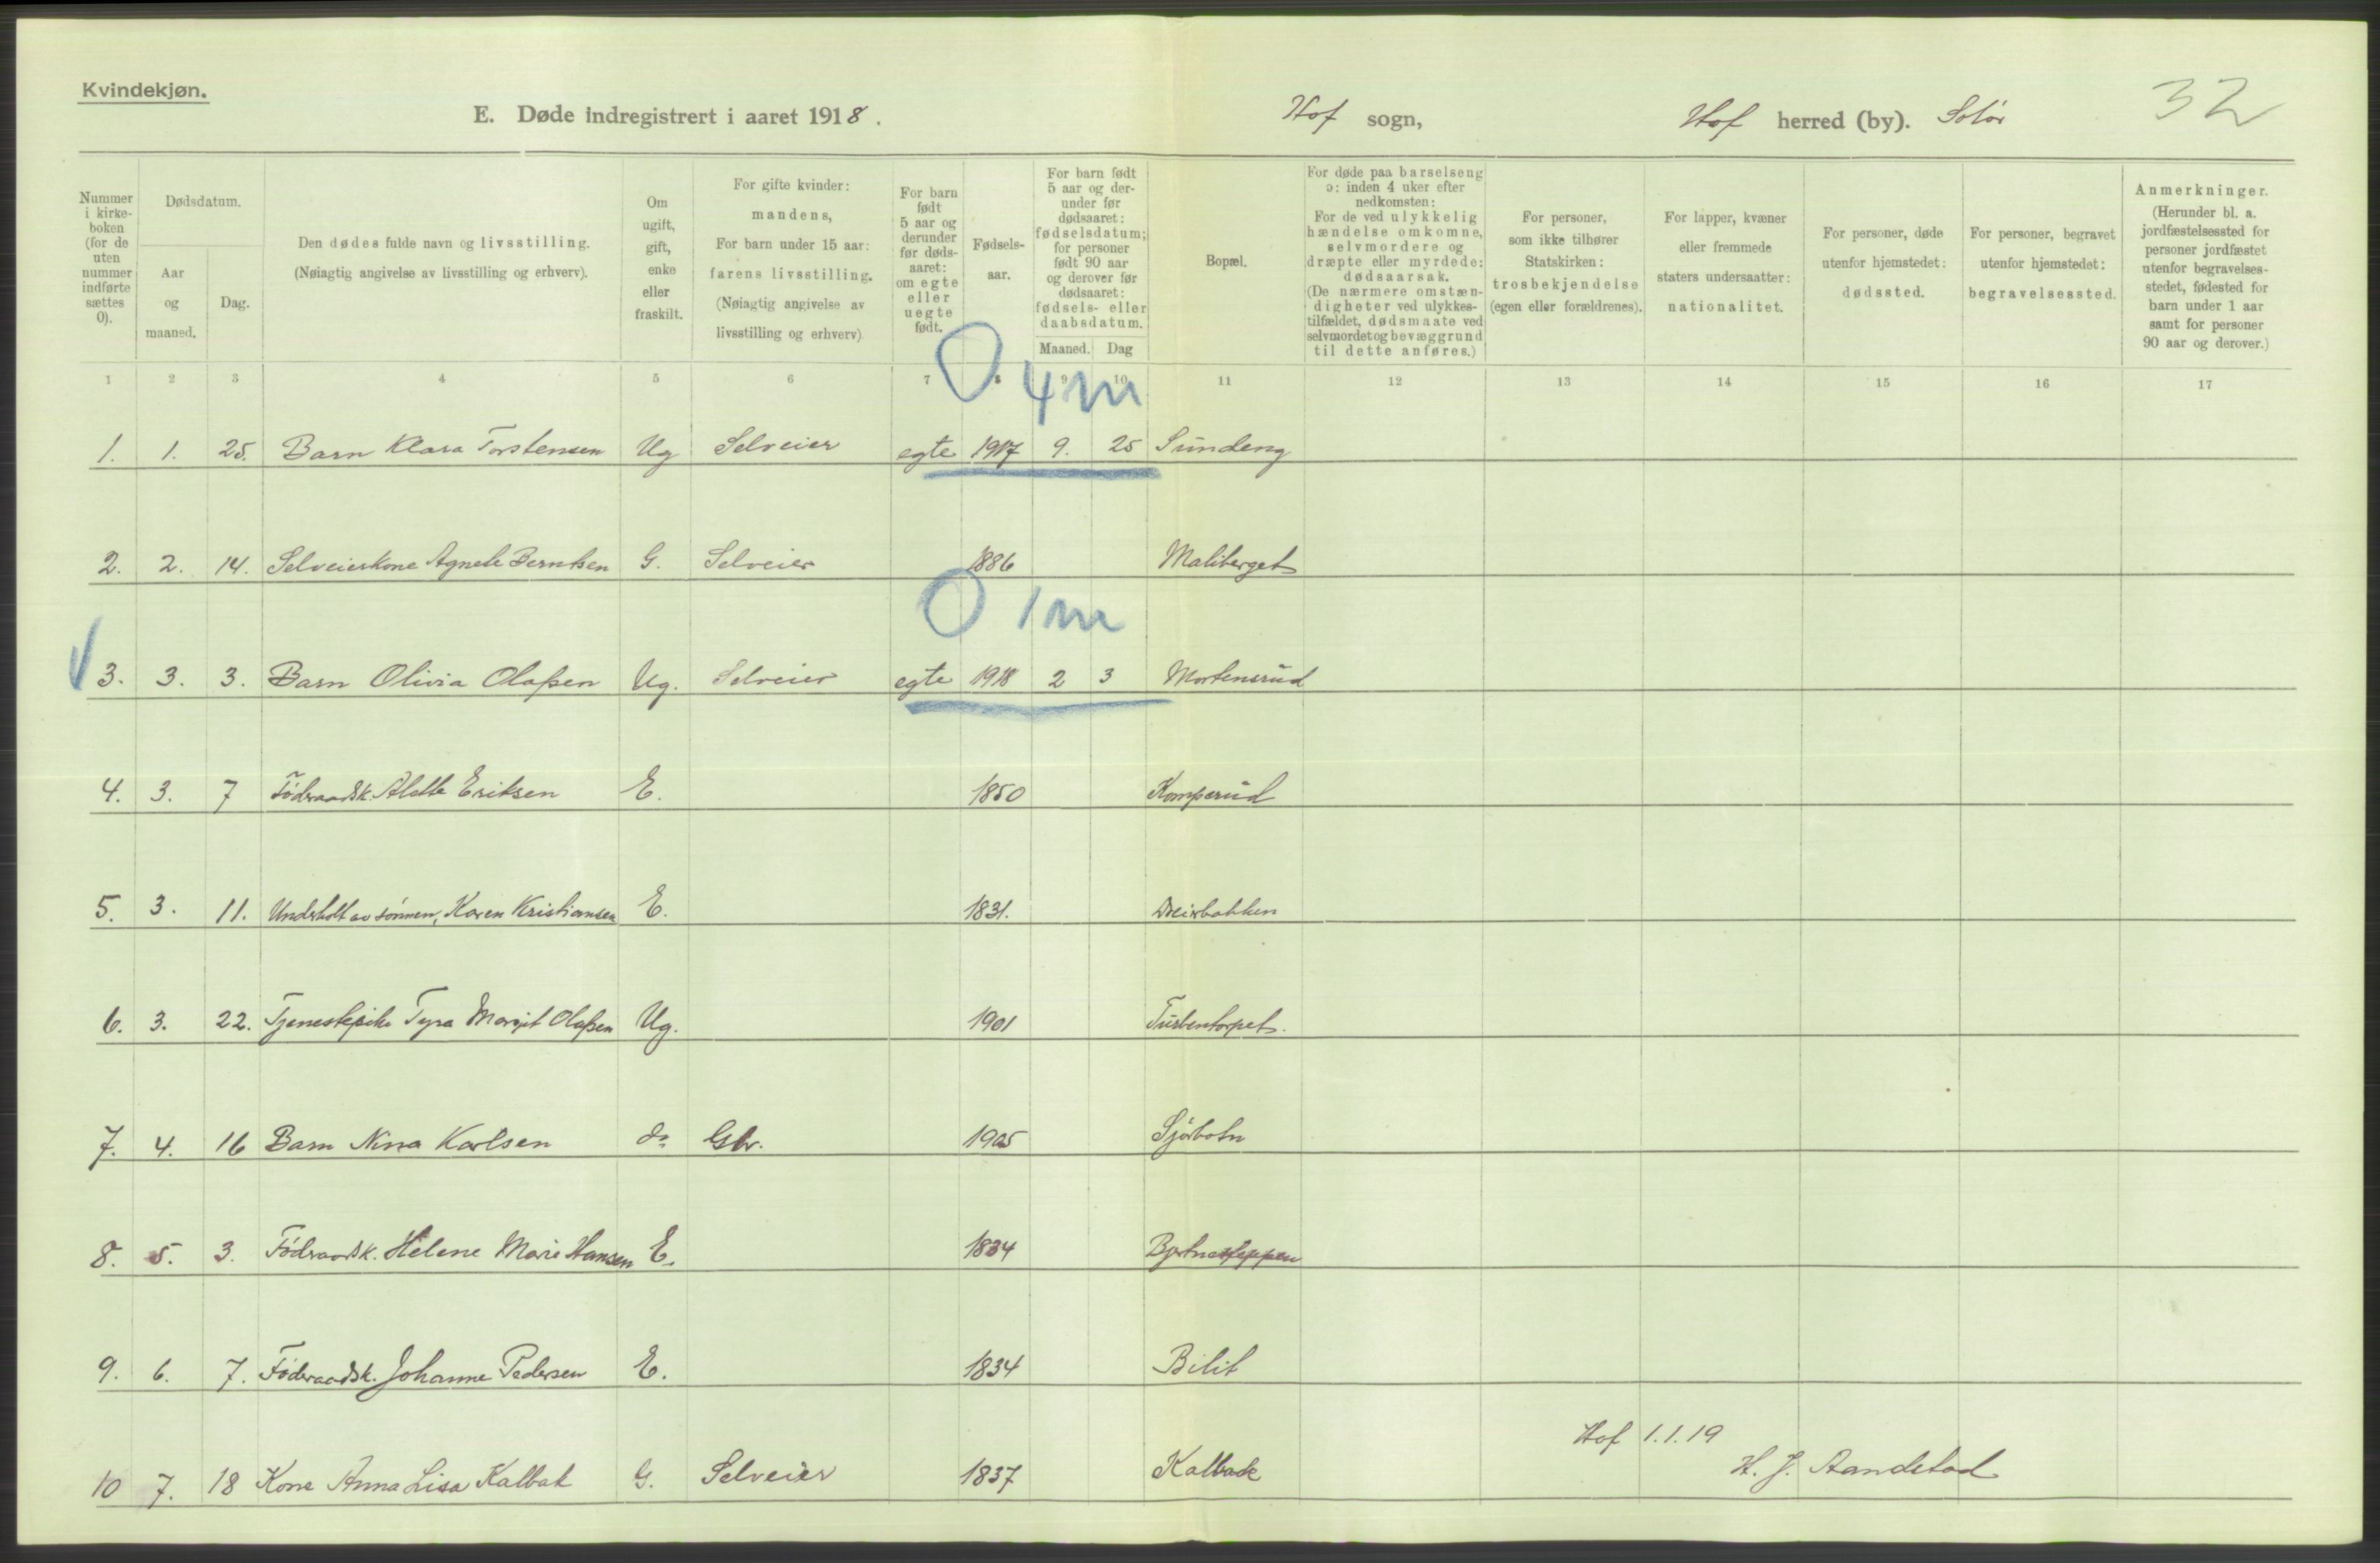 Kvindekjøn.
E. Døde indregistrert i aaret 1918. Hof sogn, Hof herred (by). Solør 32
Nummer i kirke-boken (for de uten nummer indførte sættes 0).
Dødsdatum.
Aar og maaned.
Dag.
Den dødes fulde navn og livsstilling.
(Nøiagtig angivelse av livsstilling og erhverv).
Om ugift, gift, enke eller fraskilt.
For gifte kvinder: mandens, For barn under 15 aar: farens livsstilling. (Nøiagtig angivelse av livsstilling og erhverv)
For barn født 5 aar og derunder før døds-aaret: om egte eller uegte født.
Fødsels-aar.
For barn født 5 aar og der-under før dødsaaret: fødselsdatum; for personer født 90 aar og derover før dødsaaret: fødsels- eller daabsdatum.
Maaned. Dag
Bopæl.
For døde paa barselseng ɔ: inden 4 uker efter nedkomsten: For de ved ulykkelig hændelse omkomne, selvmordere og dræpte eller myrdede: dødsaarsak. (De nærmere omstæn-digheter ved ulykkes-tilfældet, dødsmaate ved selvmordet og bevæggrund til dette anføres.)
For personer, som ikke tilhører Statskirken: trosbekjendelse (egen eller forældrenes).
For lapper, kvæner eller fremmede staters undersaatter: nationalitet.
For personer, døde utenfor hjemstedet: dødssted.
For personer, begravet utenfor hjemstedet: begravelsessted.
Anmerkninger. (Herunder bl. a. jordfæstelsessted for personer jordfæstet utenfor begravelses-stedet, fødested for barn under 1 aar samt for personer 90 aar og derover.)
1 2 3 4 5 6 7 8 9 10 11 12 13 14 15 16 17
0 4 m
1. 1. 25. Barn Klara Torstensen Ug Selveier egte 1917 9. 25 Sundeng
2. 2. 14. Selveierkone Agnete Berntsen G. Selveier 1886 Maliberget
0 1 m
3. 3. 3. Barn Olivia Olaßen Ug. Selveier egte 1918 2 3 Mortensrud
4. 3. 7 Föderaadsk. Alette Eriksen E. 1850 Komperud
5. 3. 11. Underholt av sönnen, Karen Kristiansen E. 1831.
6. 3. 22. Tjenestepike Tyra Margit Olaßen Ug. 1901
7. 4. 16 Barn Nina Karlsen do Gbr. 1905 Sjörbotn
8. 5. 3. Föderaadsk. Helene Marie Hansen E. 1834
9. 6. 7. Föderaadsk. Johanne Pedersen E. 1834 Bilit
Hof 1.1.19
10 7. 18 Kone Anna Lisa Kalbak G. Selveier 1837 Kalbak
H. J. Aandstad